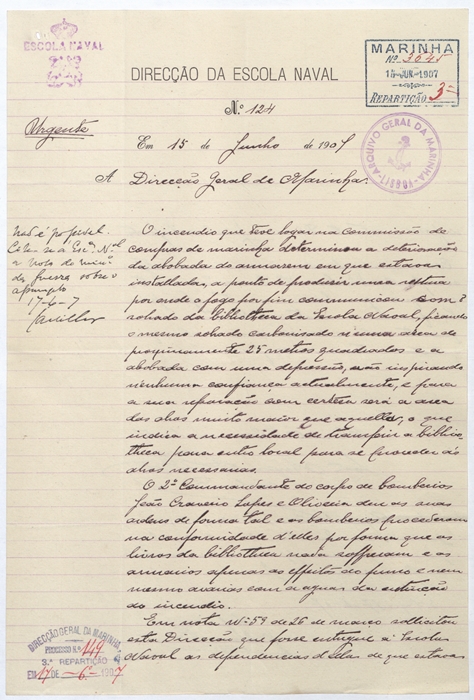 ESCOLA NAVAL
MARINHA
Nº 3645
15 JUN. 1907
REPARTIÇÃO 3ª
DIRECÇÃO DA ESCOLA NAVAL
Nº 124
Urgente
Em 15 de Junho de 1907
ARQUIVO GERAL DA MARINHA · LISBOA
A Direcção Geral de Marinha.
Não é possivel.
17-6-7
O incendio que teve logar na Commissão de
compras de marinha determinou a deterioração
da abobada do armazem em que estava
installada, a ponto de produzir uma ruptura
por onde o fogo por fim communicou com o
solhado da bibliotheca da Escola Naval, ficando
o mesmo solhado carbonisado n'uma area de
proximamente 25 metros quadrados e a
abobada com uma depressão, não inspirando
nenhuma confiança actualmente, e para
a sua reparação com certeza será a area
das obras muito maior que aquella, o que
indica a necessidade de transferir a biblio-
theca para outro local para se fazerem as
obras necessarias.
O 2º Commandante do corpo de bombeiros
João Craveiro Lopes e Oliveira deu as suas
ordens de forma tal e os bombeiros procederam
na conformidade d'ellas por forma que os
livros da bibliotheca nada soffreram e os
armarios apenas os effeitos do fumo e nem
mesmo avarias com a agua da extincção
do incendio.
Em nota Nº 59 de 26 de março sollicitou
esta Direcção que fosse entregue á Escola
Naval as dependencias d'ella de que estava
DIRECÇÃO GERAL DA MARINHA
PROCESSO N.º 149
3.ª REPARTIÇÃO
EM 17 DE -6- 1907